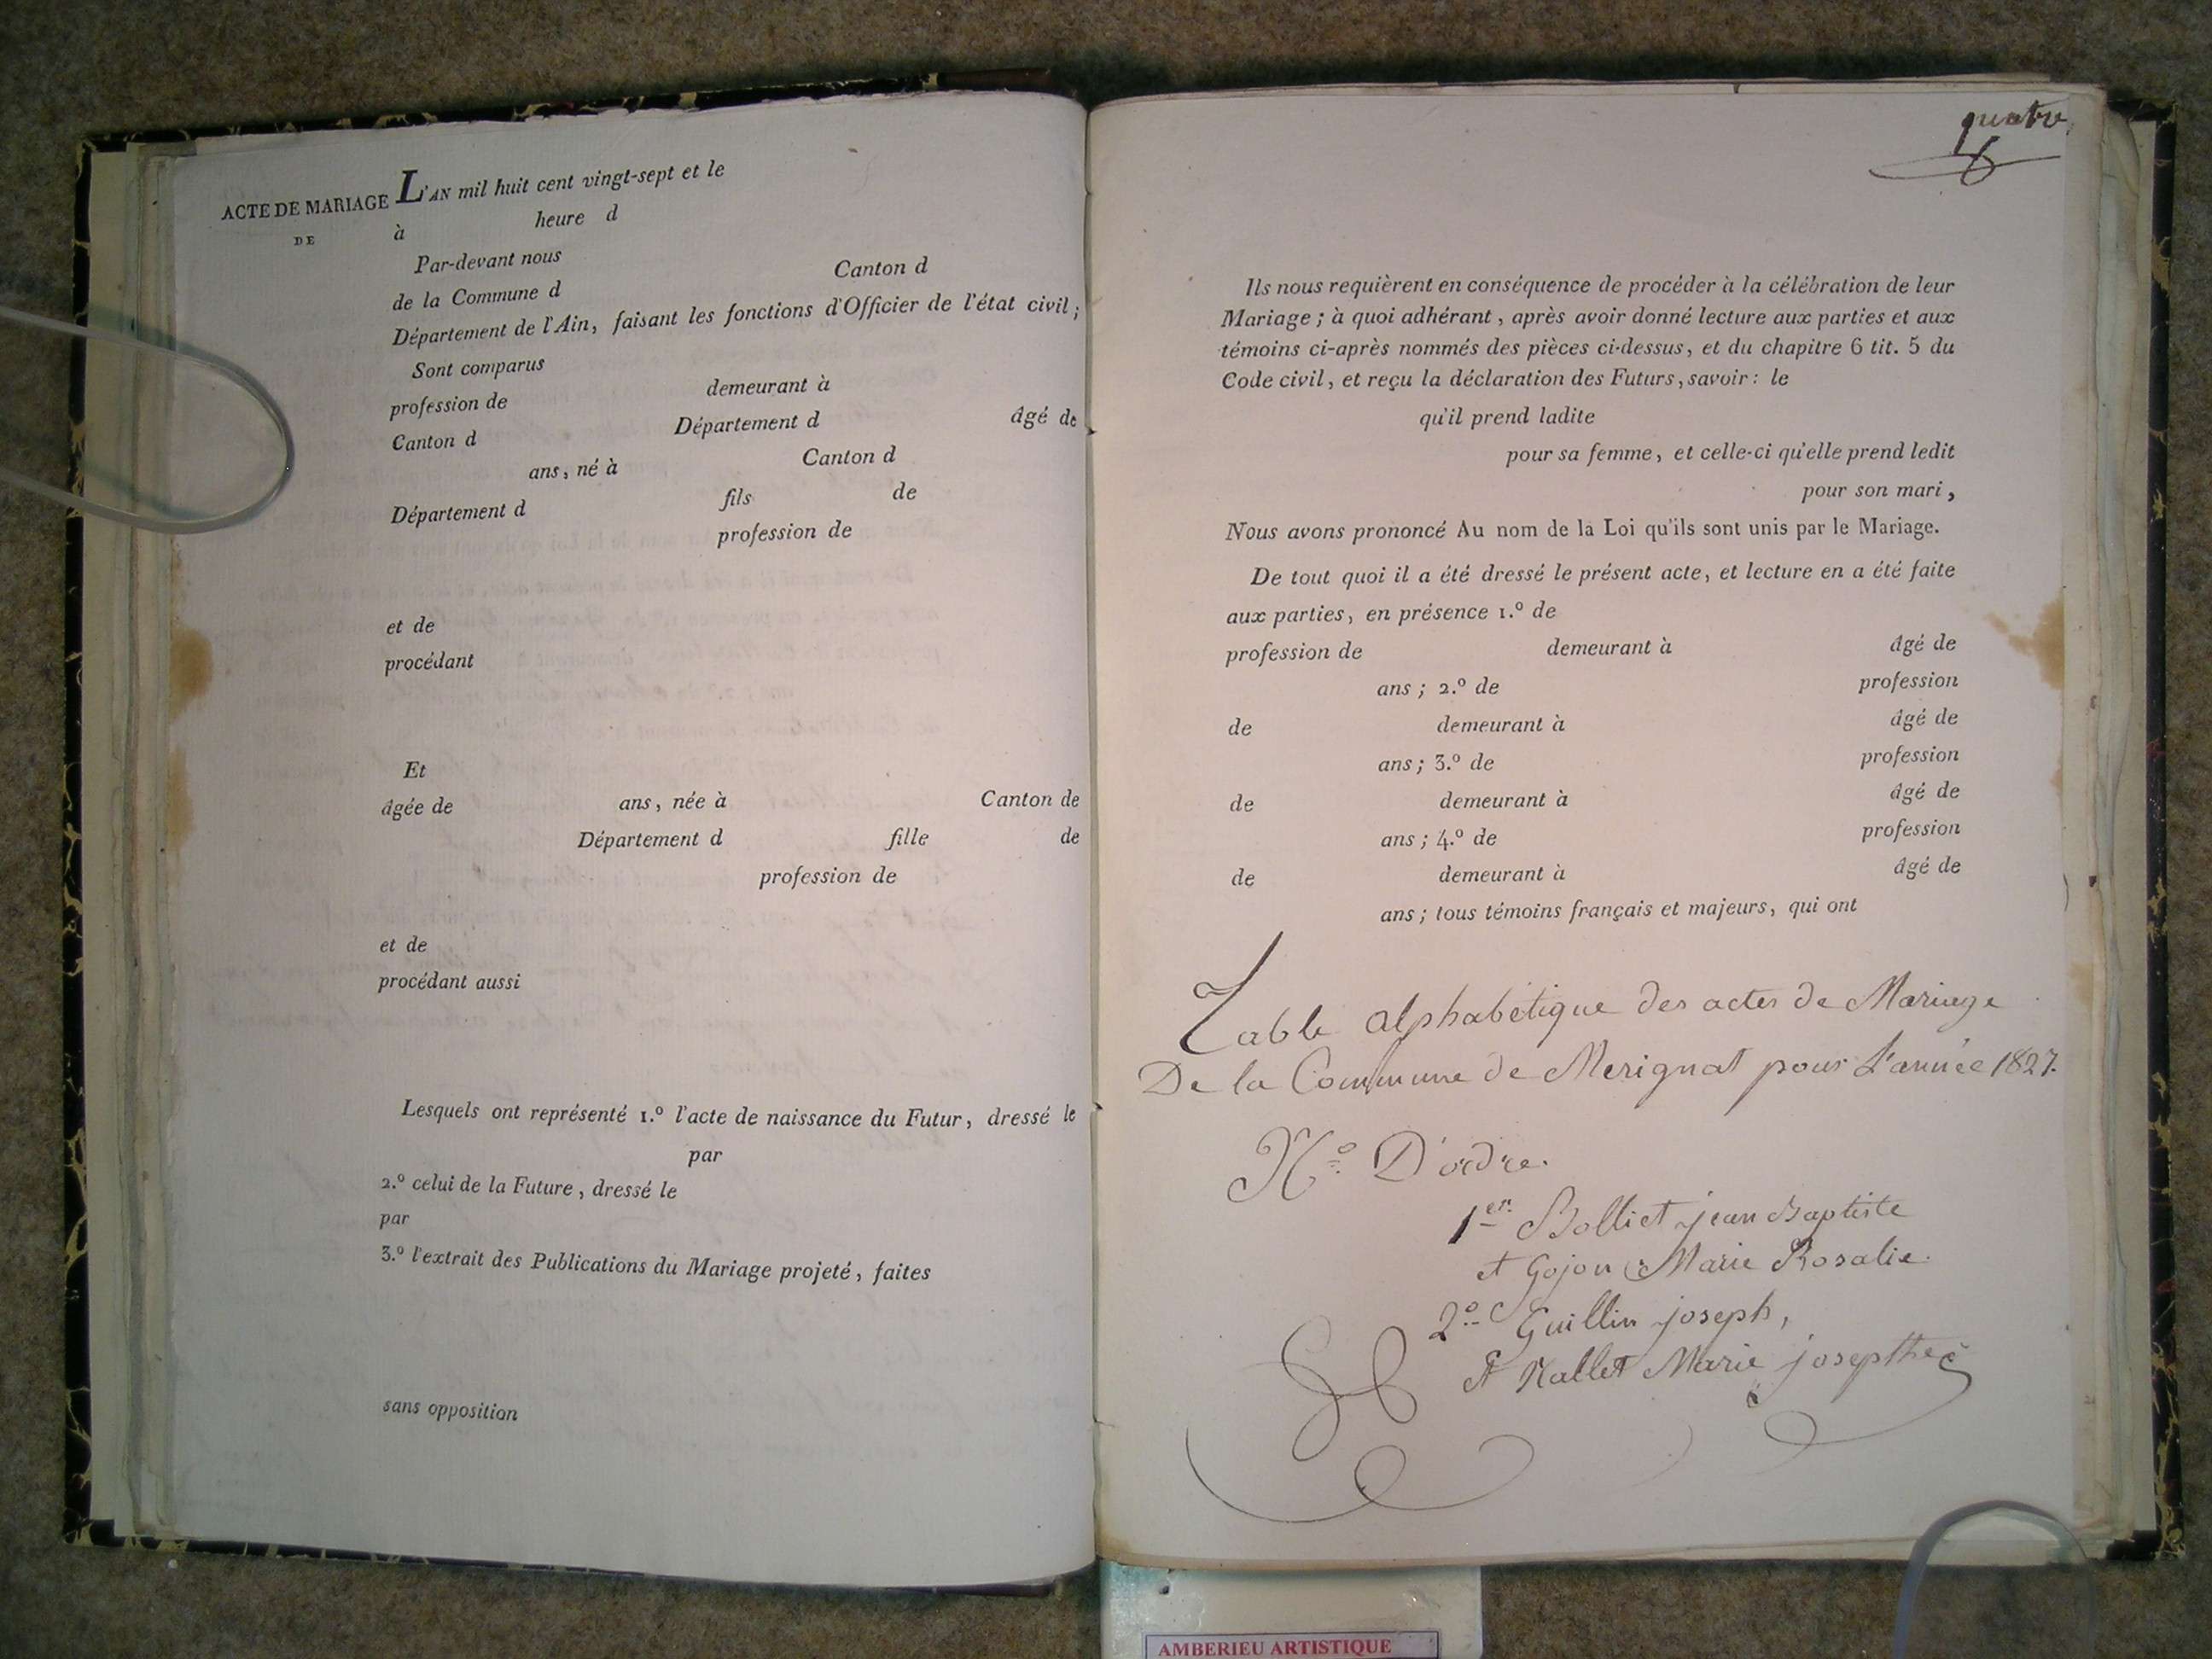 ACTE DE MARIAGE
DE
L'AN mil huit cent vingt-sept et le
à heure d
Par-devant nous
de la Commune d Canton d
Département de l'Ain, faisant les fonctions d'Officier de l'état civil ;
Sont comparus
profession de demeurant à
Canton d Département d âgé de
ans, né à Canton d
Département d fils de
profession de
et de
procédant
Et
âgée de ans, née à Canton de
Département d fille de
profession de
et de
procédant aussi
Lesquels ont représenté 1.º l'acte de naissance du Futur, dressé le
par
2.º celui de la Future, dressé le
par
3.º l'extrait des Publications du Mariage projeté, faites
sans opposition
quatre
Ils nous requièrent en conséquence de procéder à la célébration de leur
Mariage ; à quoi adhérant, après avoir donné lecture aux parties et aux
témoins ci-après nommés des pièces ci-dessus, et du chapitre 6 tit. 5 du
Code civil, et reçu la déclaration des Futurs, savoir : le
qu'il prend ladite
pour sa femme, et celle-ci qu'elle prend ledit
pour son mari,
Nous avons prononcé Au nom de la Loi qu'ils sont unis par le Mariage.
De tout quoi il a été dressé le présent acte, et lecture en a été faite
aux parties, en présence 1.º de
profession de demeurant à âgé de
ans ; 2.º de profession
de demeurant à âgé de
ans ; 3.º de profession
de demeurant à âgé de
ans ; 4.º de profession
de demeurant à âgé de
ans ; tous témoins français et majeurs, qui ont
Table alphabétique des actes de Mariage
De la Commune de Merignat pour L'année 1827.
Nº D'ordre.
1er Bolliet jean Baptiste
et Gojon Marie Rosalie.
2º Guillin joseph,
Et Nallet Marie josepthe
AMBERIEU ARTISTIQUE